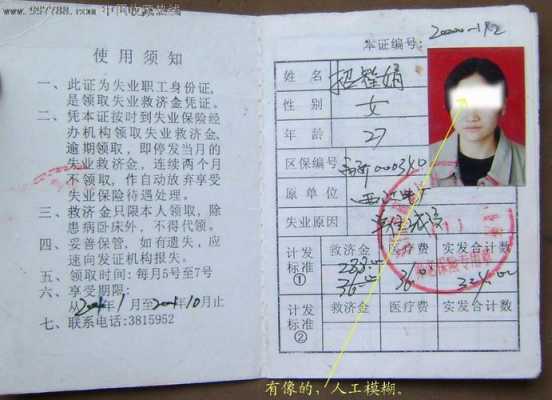 www.997788.com 中国收藏热线
使用须知
一、此证为失业职工身份证,
是领取失业救济金凭证。
二、凭本证按时到失业保险经
办机构领取失业救济金,
逾期领取,即停发当月的
失业救济金,连续两个月
不领取,作自动放弃享受
失业保险待遇处理。
三、救济金只限本人领取,除
患病卧床外,不得代领。
四、妥善保管,如有遗失,应
速向发证机构报失。
五、领取时间:每月5号至7号
六、享受期限:
从 年1月至 年10月止
七、联系电话:3815952
本证编号:
姓名
性别 女
年龄 27
区保编号
原单位
失业原因
计发标准① 救济金 医疗费 实发合计数
288
36 36 324.00
计发标准② 救济金 医疗费 实发合计数
有像的,人工模糊。